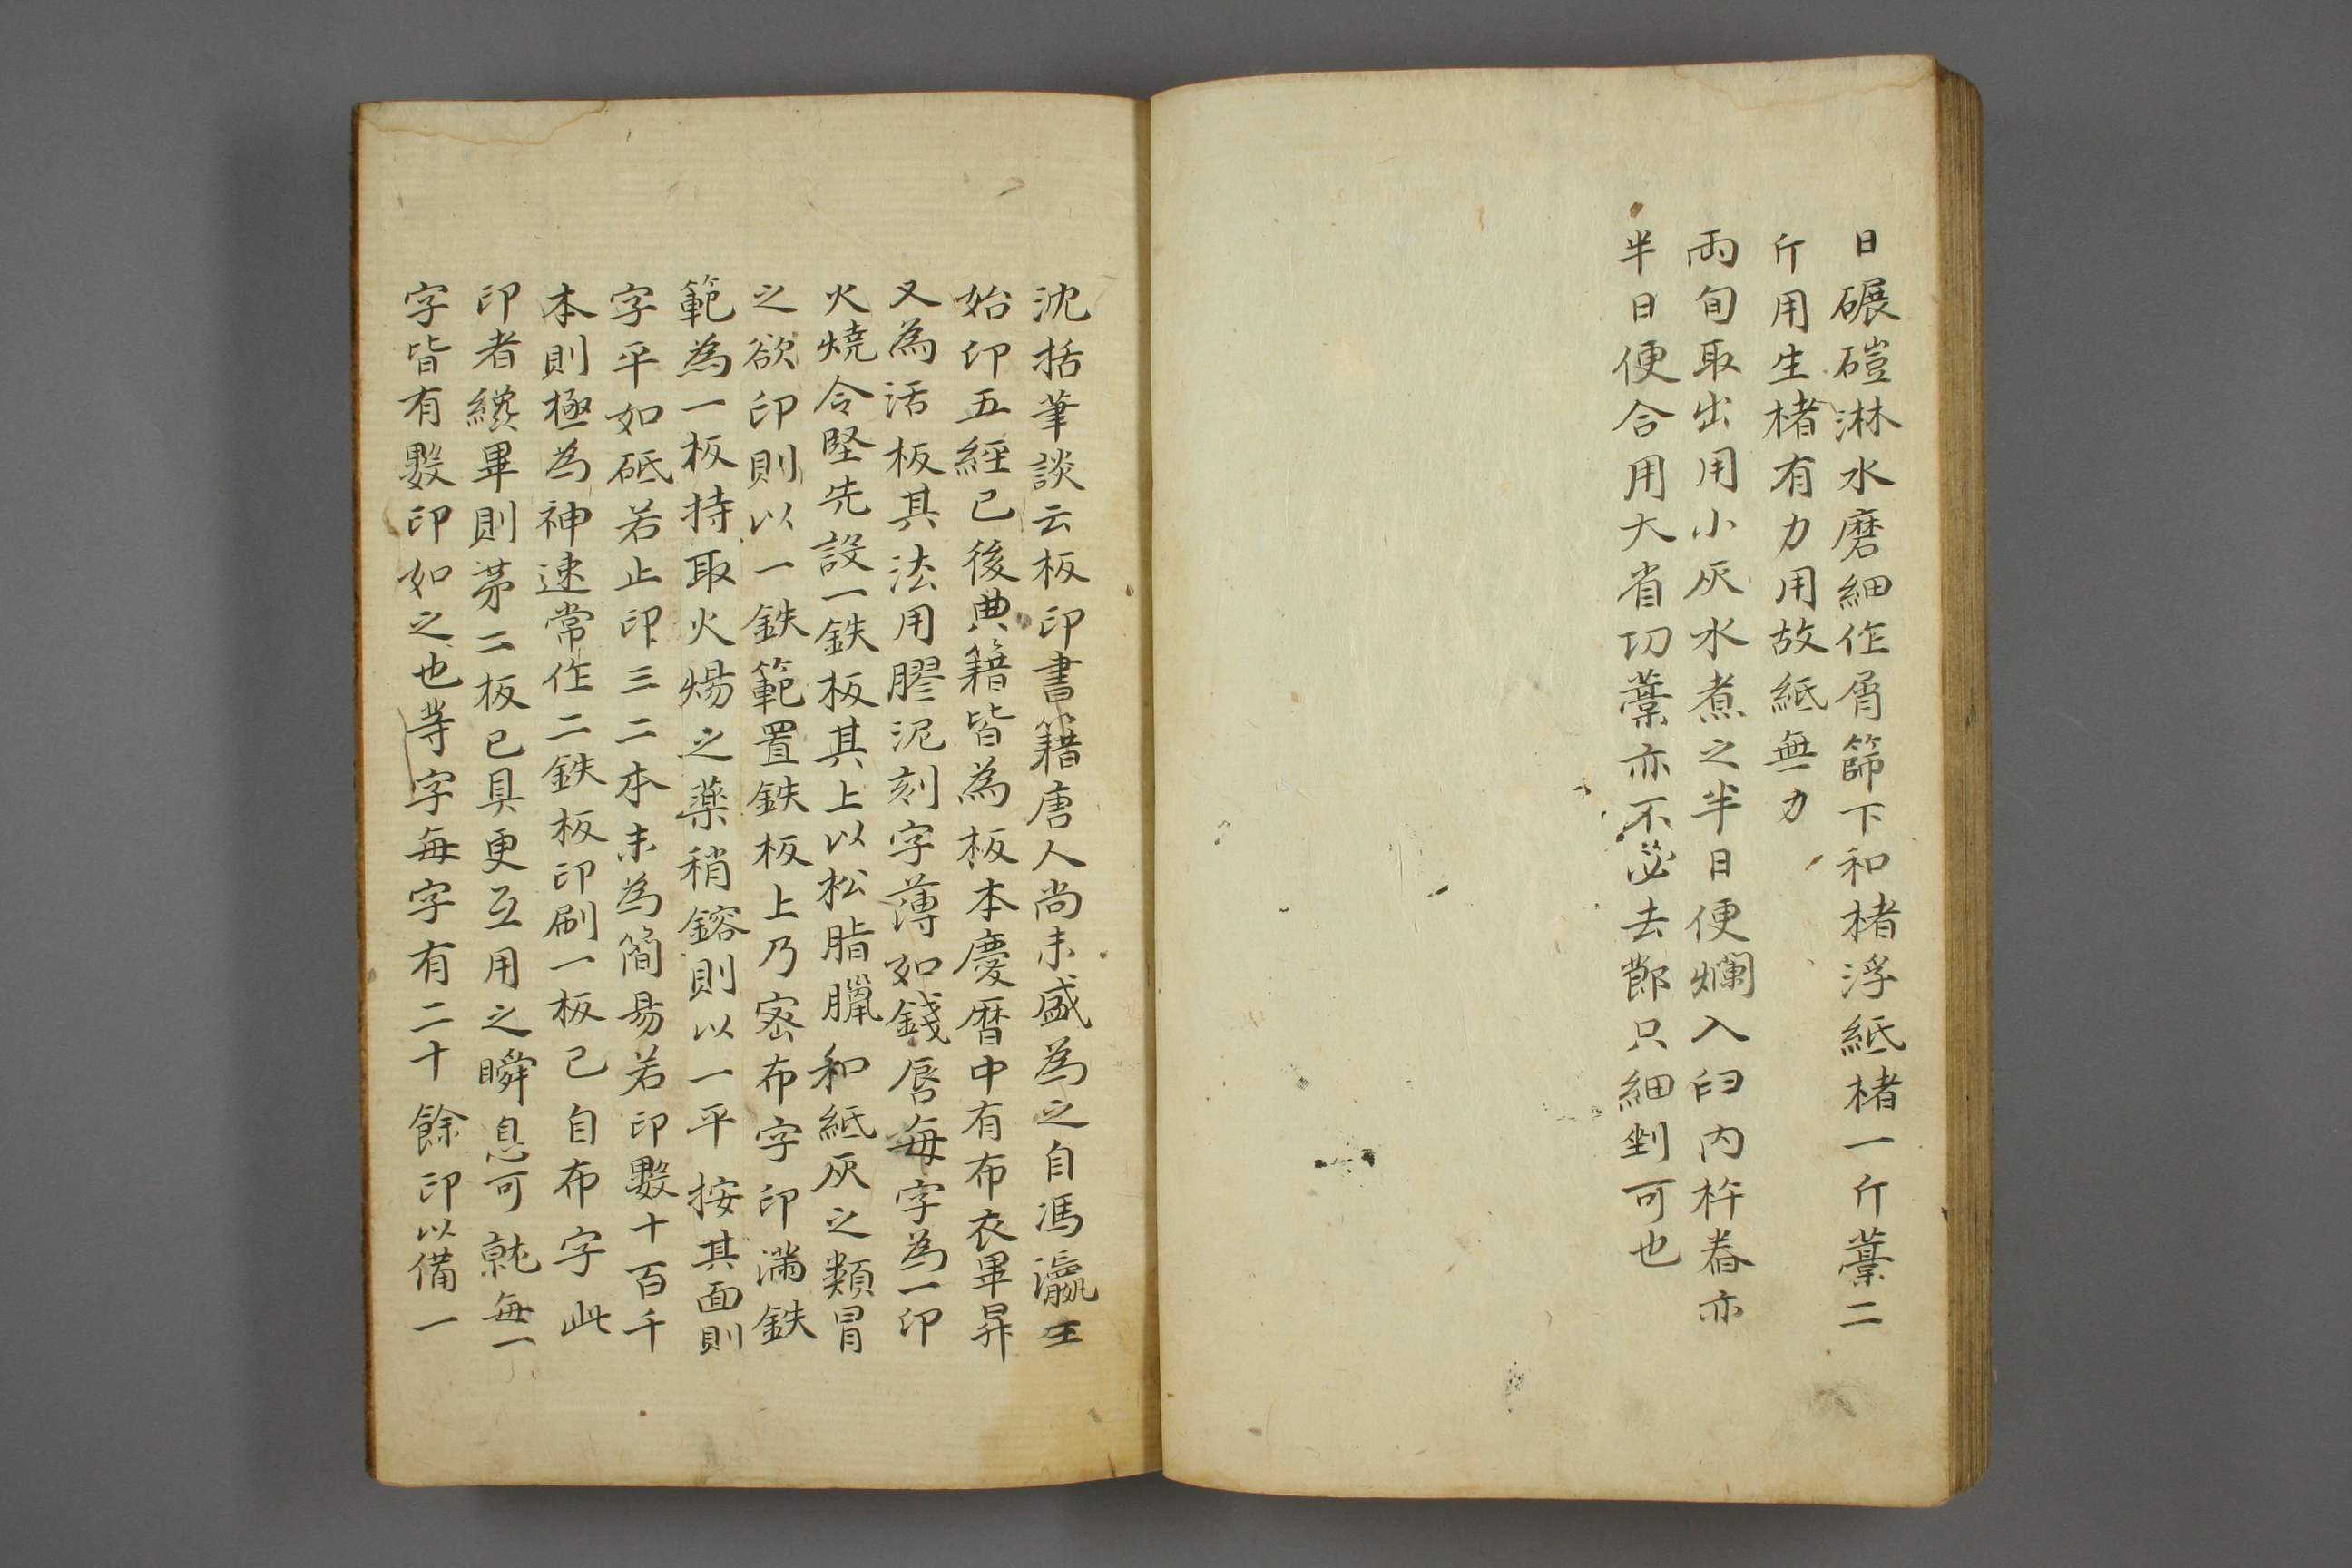 日碾磑淋水磨細作屑篩下和楮浮紙楮一斤藁二
斤用生楮有力用故紙無力
兩旬取出用小灰水煮之半日便爛入臼内杵舂亦
半日便合用大省功藁亦不必去節只細剉可也
沈括筆談云板印書籍唐人尚未盛為之自馮瀛王
始印五經已後典籍皆為板本慶曆中有布衣畢昇
又為活板其法用膠泥刻字薄如錢唇每字為一印
火燒令堅先設一鉄板其上以松脂臘和紙灰之類冒
之欲印則以一鉄範置鉄板上乃密布字印滿鉄
範為一板持取火煬之藥稍鎔則以一平按其面則
字平如砥若止印三二本未為簡易若印數十百千
本則極為神速常作二鉄板印刷一板已自布字此
印者纔畢則苐二板已具更互用之瞬息可就每一
字皆有數印如之也等字每字有二十餘印以備一